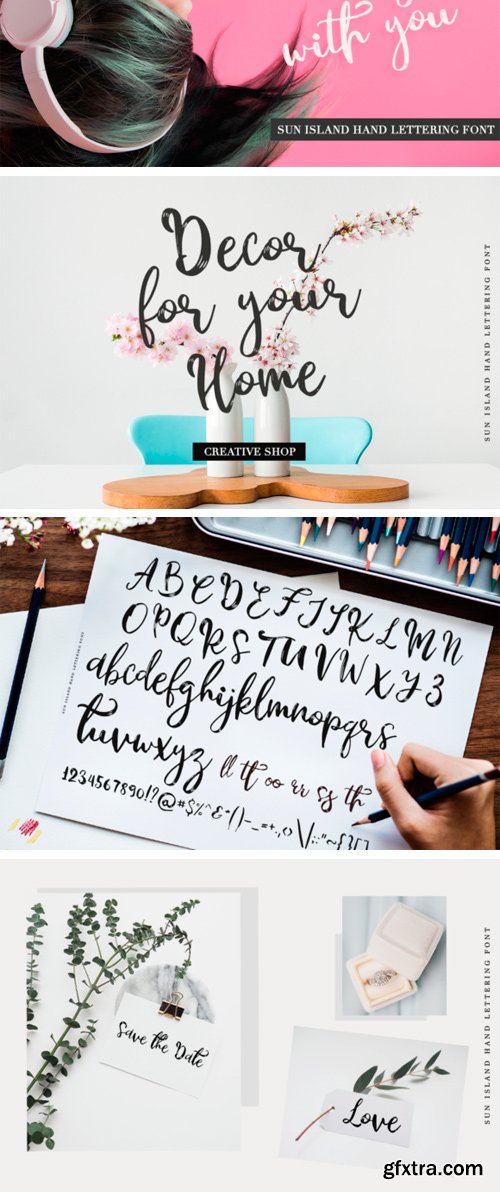 with you
SUN ISLAND HAND LETTERING FONT
Decor
for your
Home
CREATIVE SHOP
SUN ISLAND HAND LETTERING FONT
ABCDEFIJKLMN
OPQRSTUVWXYZ
abcdefghijklmnopqrs
tuvwxyz ll tt oo rr ss th
1234567890!?@#$%^&*()-_=+.,<>\|:;"~{}[]
SUN ISLAND HAND LETTERING FONT
Save the Date
Love
SUN ISLAND HAND LETTERING FONT
gfxtra.com